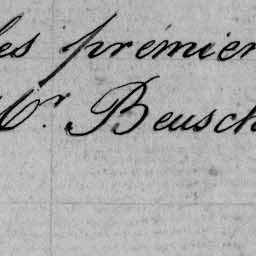 les premier
Mr. Beusch